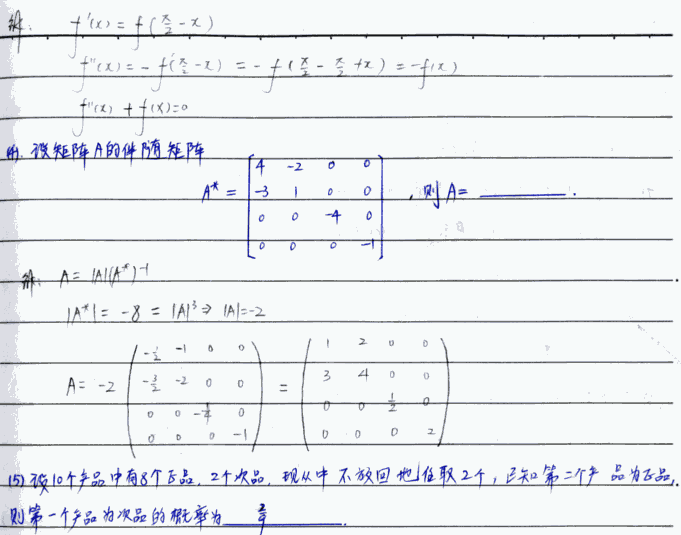 解: f'(x) = f(π/2 - x)
f''(x) = - f'(π/2 - x) = - f(π/2 - π/2 + x) = - f(x)
f''(x) + f(x) = 0
(4). 设矩阵A的伴随矩阵
A* = [4 -2 0 0; -3 1 0 0; 0 0 -4 0; 0 0 0 -1], 则 A = ______.
解: A = |A|(A*)⁻¹
|A*| = -8 = |A|³ ⇒ |A| = -2
A = -2 (-1/2 -1 0 0; -3/2 -2 0 0; 0 0 -1/4 0; 0 0 0 -1) = (1 2 0 0; 3 4 0 0; 0 0 1/2 0; 0 0 0 2)
(5) 设10个产品中有8个正品, 2个次品, 现从中不放回地任取2个, 已知第二个产品为正品,
则第一个产品为次品的概率为 2/9 .